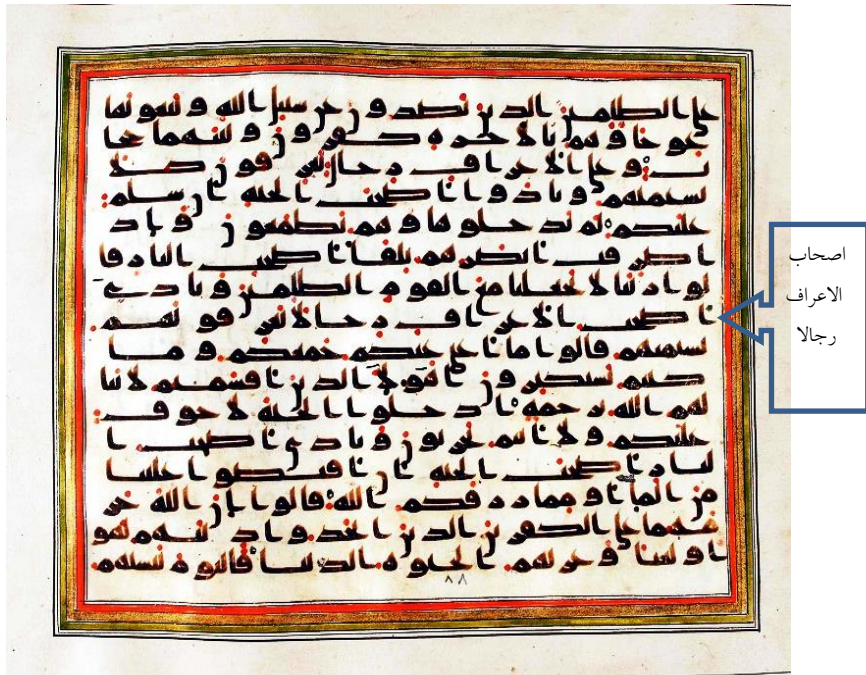 على الظلمين الذين يصدون عن سبيل الله ويبغونها
عوجا وهم بالاخره كفرون وبينهما حجا
ب وعلى الاعراف رجال يعرفون كلا
بسيميهم ونادوا اصحب الجنه ان سلم
عليكم لم يدخلوها وهم يطمعون واذ
ا صرفت ابصرهم تلقا اصحب النار قا
لوا ربنا لا تجعلنا مع القوم الظلمين ونادى
اصحب الاعراف رجالا يعرفونهم
بسيميهم قالوا ما اغنى عنكم جمعكم وما
كنتم تستكبرون اهولا الذين اقسمتم لا ينا
لهم الله برحمه ادخلوا الجنه لا خوف
عليكم ولا انتم تحزنون ونادى اصحب ا
لنار اصحب الجنه ان افيضوا علينا
من الما او مما رزقكم الله قالوا ان الله حر
مهما على الكفرين الذين اتخذوا دينهم لهو
ا ولعبا وغرتهم الحيوه الدنيا فاليوم ننسيهم
٨٨
اصحاب
الاعراف
رجالا